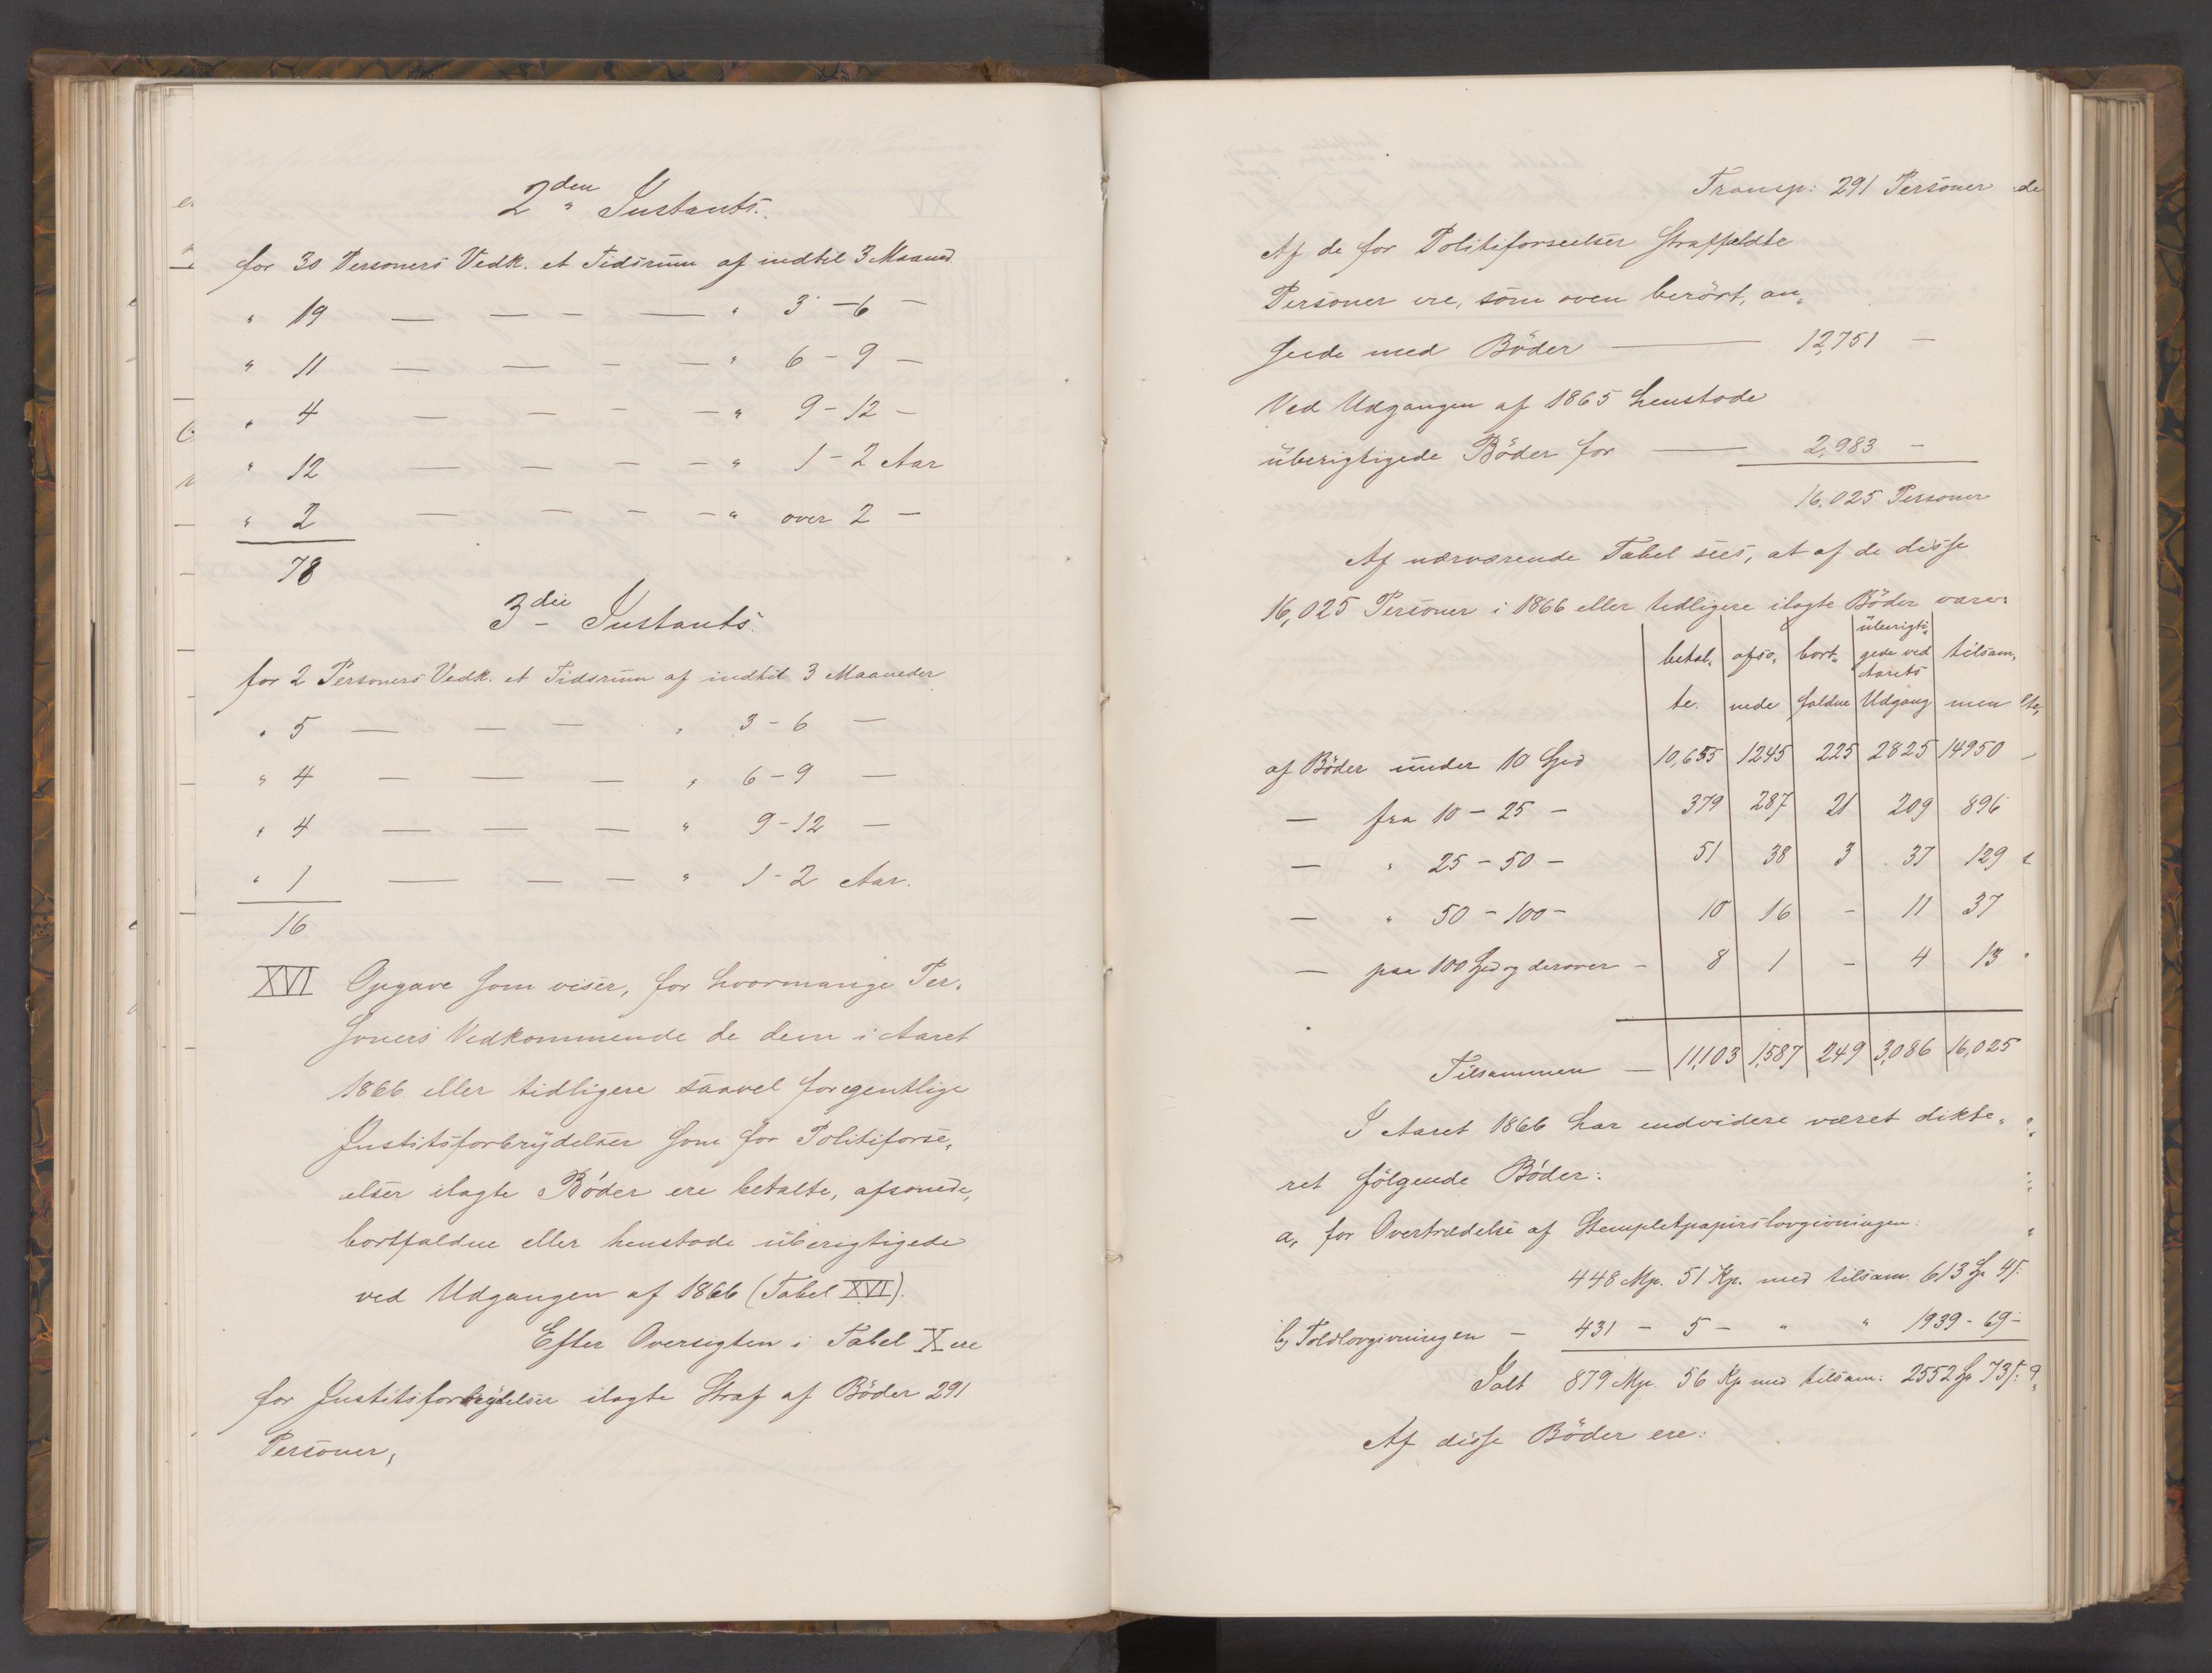 2den Instants.
for 30 Personers Vedk. et Tidsrum af indtil 3 Maaned
" 19 — — — — " 3 – 6 —
" 11 — — — — " 6 – 9 —
" 4 — — — — " 9 – 12 –
" 12 — — — — " 1 – 2 Aar
" 2 — — — — " over 2 —
78
3die Instants.
for 2 Personers Vedk. et Tidsrum af indtil 3 Maaneder
" 5 — — — " 3 – 6 —
" 4 — — — " 6 – 9 —
" 4 — — — " 9 – 12 —
" 1 — — — " 1 – 2 Aar.
16
XVI Opgave som viser, for hvormange Per-
soners Vedkommende de dem i Aaret
1866 eller tidligere saavel for egentlige
Justitsforbrydelser som for Politiforse-
elser ilagte Böder ere betalte, afsonede,
bortfaldne eller henstode uberigtigede
ved Udgangen af 1866 (Tabel XVI).
Efter Oversigten i Tabel X ere
for Justitsforbrydelser ilagte Straf af Böder 291
Personer,
Transp: 291 Personer
Af de for Politiforseelser straffældte
Personer ere, som oven berört, an-
seede med Böder — 12,751 —
Ved Udgangen af 1865 henstode
uberigtigede Böder for — 2,983 —
16,025 Personer
Af nærværende Tabel sees, at af de disse
16,025 Personer i 1866 eller tidligere ilagte Böder vare:
betal- afso- bort- uberigti- tilsam-
gede ved
Aarets
te. nede faldne Udgang men
af Böder under 10 Spd 10,655 1245 225 2825 14950
— fra 10 – 25 – 379 287 21 209 896
— " 25 – 50 – 51 38 3 37 129
— " 50 – 100 – 10 16 – 11 37
— paa 100 Spd og derover – 8 1 – 4 13
Tilsammen — 11,103 1,587 249 3,086 16,025
I Aaret 1866 har endvidere været dikte-
ret fölgende Böder:
a, for Overtrædelse af Stempletpapirslovgivningen:
448 Mp. 51 Kp. med tilsam. 613 Sp 4 s:
b, Toldlovgivningen – 431 – 5 – " " 1939 – 69 –
Ialt 879 Mp. 56 Kp med tilsam: 2552 Sp 73 s:
Af disse Böder ere: